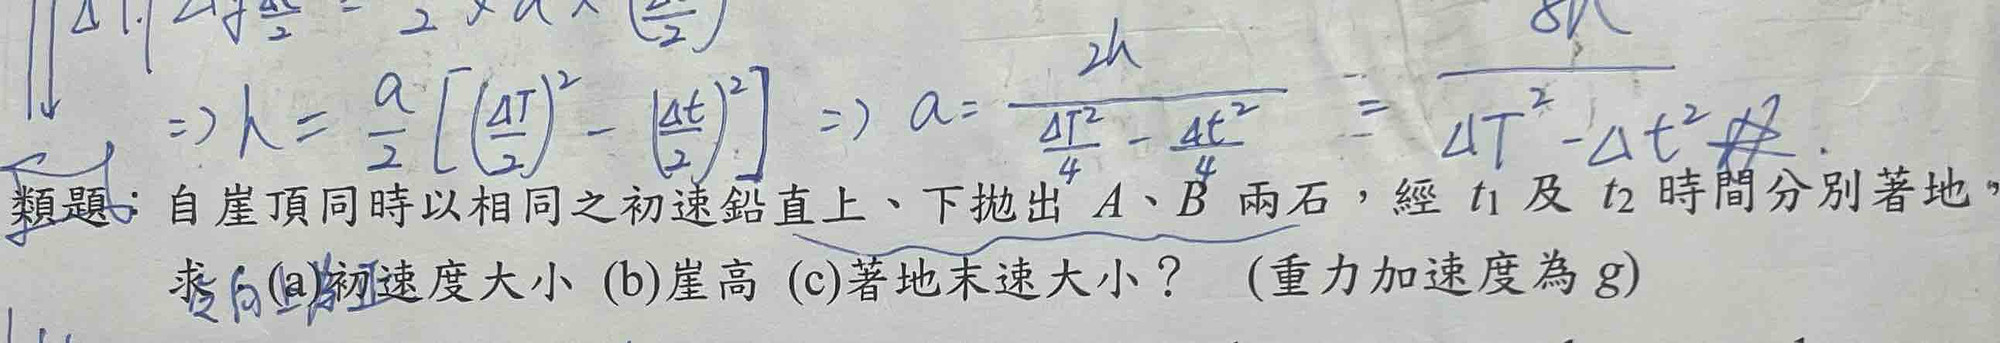 ⇒ h = a/2 [(ΔT/2)² - (Δt/2)²] ⇒ a = 2h/(ΔT²/4 - Δt²/4) = 8h/(ΔT² - Δt²) #.
類題：自崖頂同時以相同之初速鉛直上、下拋出 A、B 兩石，經 t₁ 及 t₂ 時間分別著地，
求 (a)初速度大小 (b)崖高 (c)著地末速大小？ (重力加速度為 g)